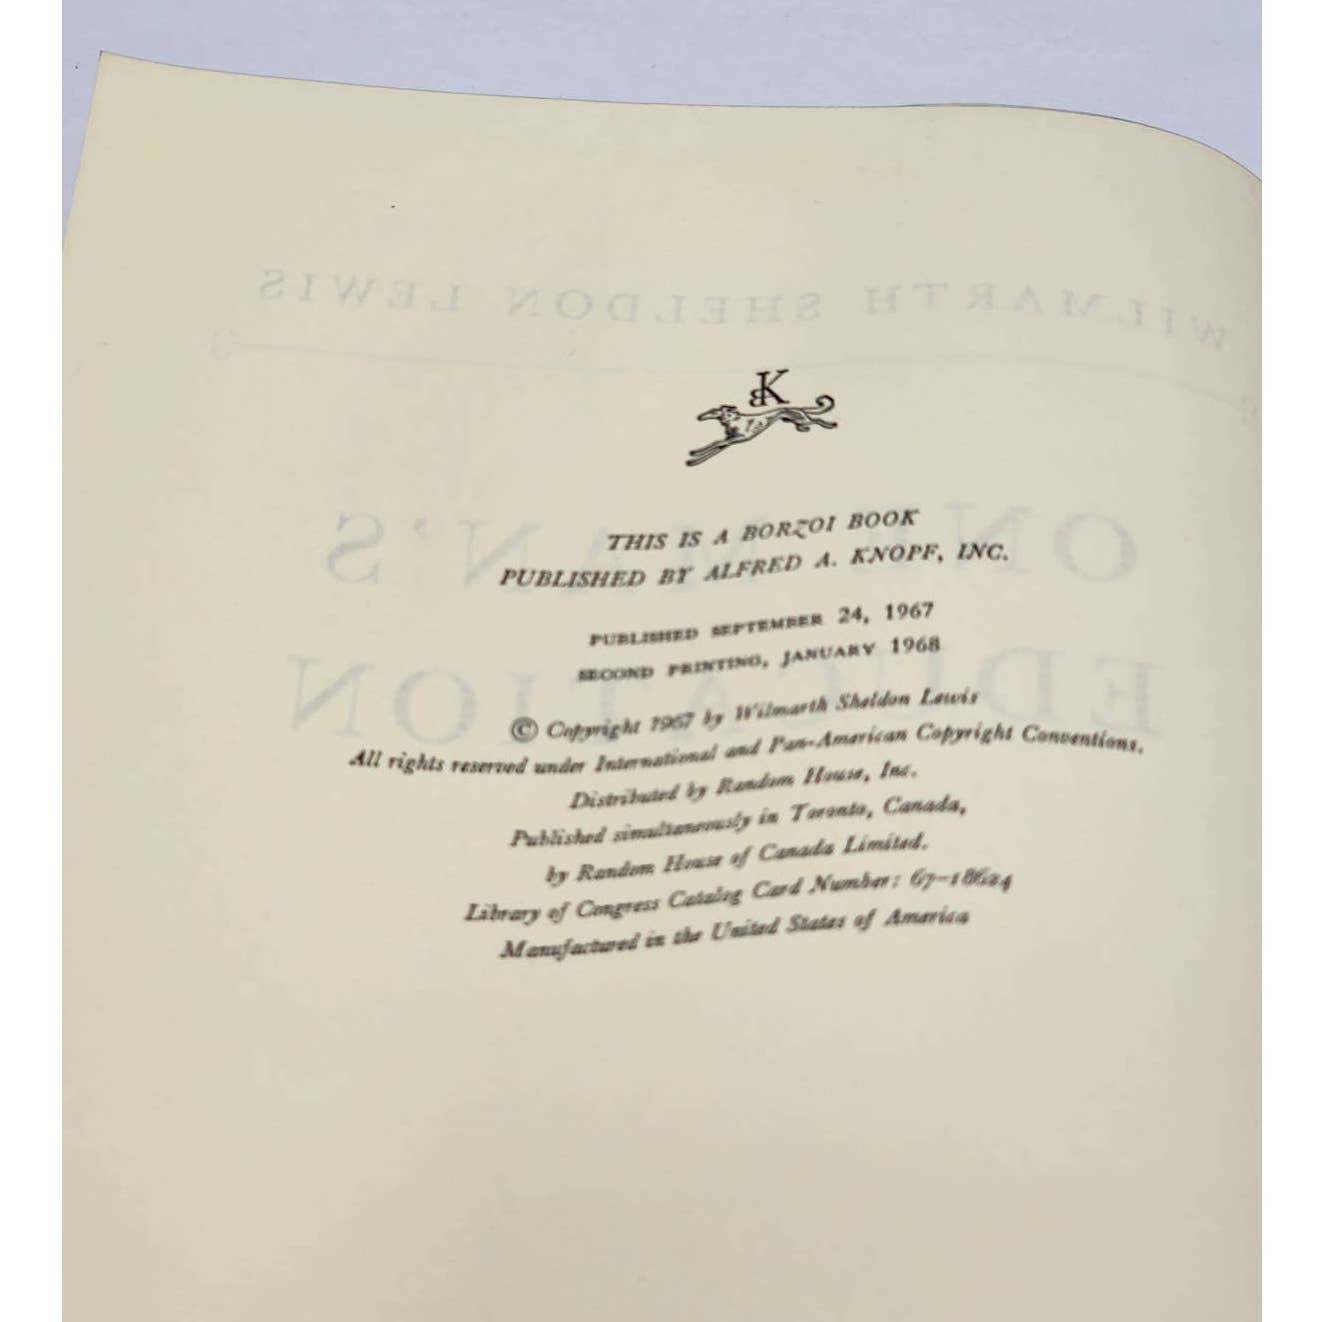 WILMARTH SHELDON LEWIS
BK
ONE MAN'S
EDUCATION
THIS IS A BORZOI BOOK
PUBLISHED BY ALFRED A. KNOPF, INC.
PUBLISHED SEPTEMBER 24, 1967
SECOND PRINTING, JANUARY 1968
© Copyright 1967 by Wilmarth Sheldon Lewis
All rights reserved under International and Pan-American Copyright Conventions.
Distributed by Random House, Inc.
Published simultaneously in Toronto, Canada,
by Random House of Canada Limited.
Library of Congress Catalog Card Number: 67-18624
Manufactured in the United States of America